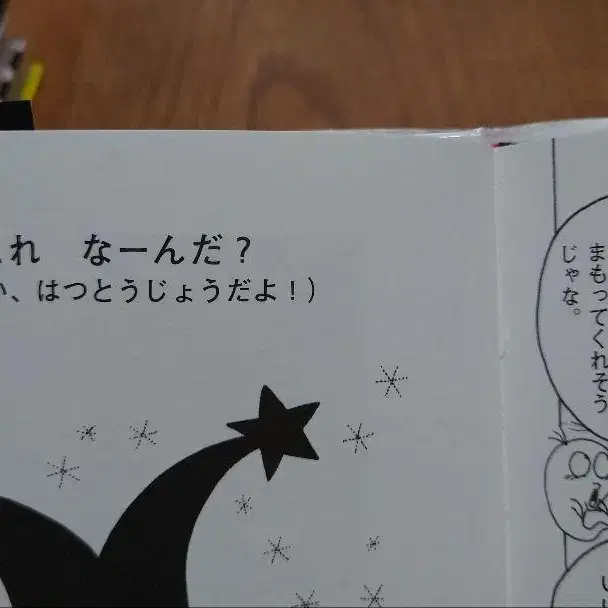 れ なーんだ？
、はつとうじょうだよ！）
まもってくれそう
じゃな。